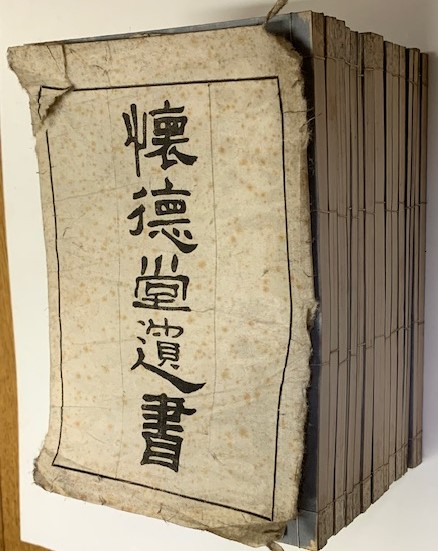 懷德堂遺書